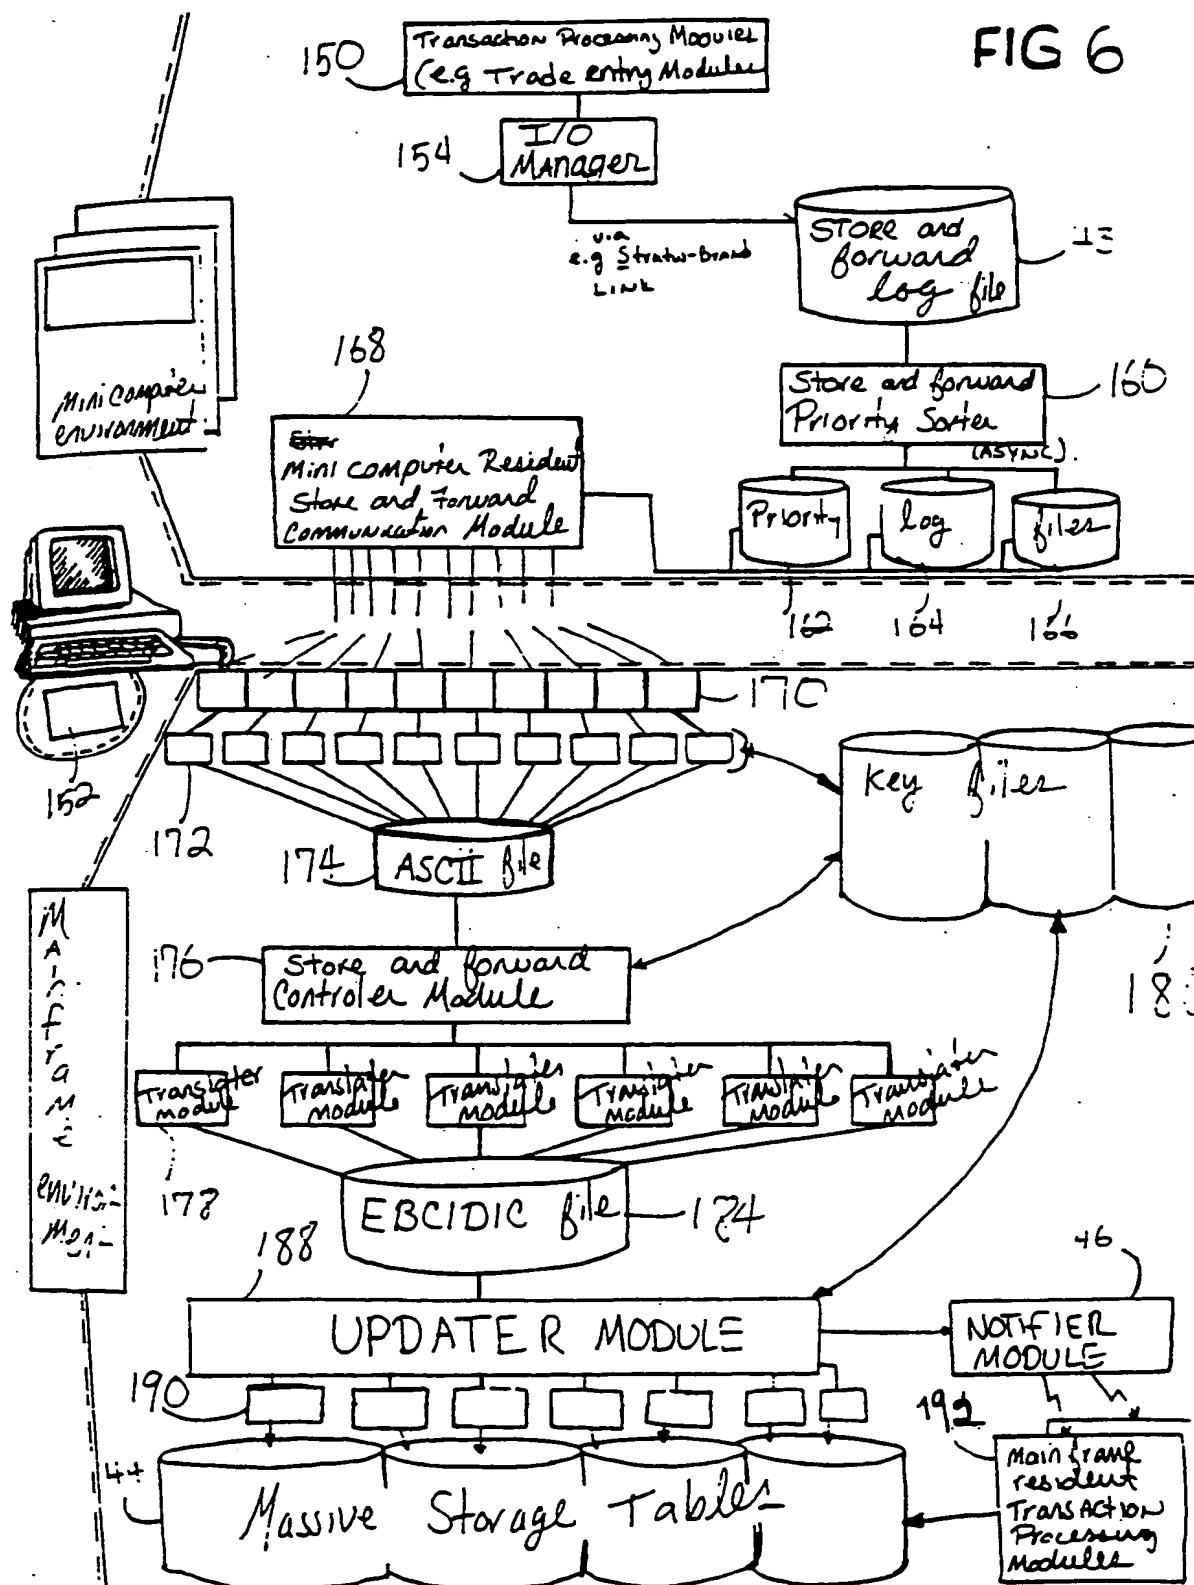 FIG 6
150
Transaction Processing Modules
(e.g Trade entry Modules
154
I/O
Manager
via
e.g Stratus-Brand
LINK
STORE and
forward
log file
Mini computer
environment
168
Mini computer Resident
Store and Forward
Communication Module
Store and forward
Priority Sorter
160
(ASYNC).
Priority
log
files
162
164
166
170
152
172
174
ASCII file
Key files
183
176
Store and forward
Controler Module
Mainframe
Translater
module
Translater
module
Translater
module
Translater
module
Translater
module
Translater
module
178
EBCIDIC file
188
UPDATER MODULE
46
NOTIFIER
MODULE
190
192
44
Massive Storage Tables
Mainframe
resident
TRANSACTION
Processing
Modules